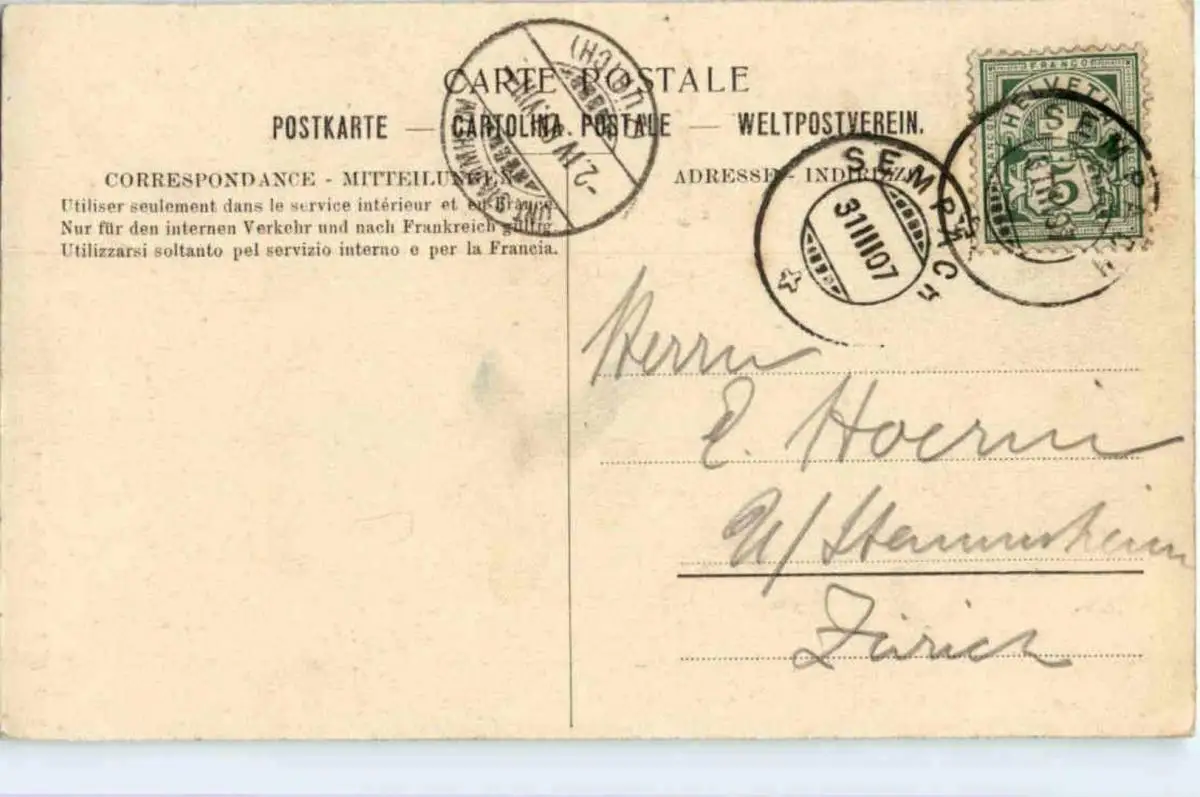 CARTE POSTALE
POSTKARTE — CARTOLINA POSTALE — WELTPOSTVEREIN.
CORRESPONDANCE - MITTEILUNGEN
Utiliser seulement dans le service intérieur et en France.
Nur für den internen Verkehr und nach Frankreich gültig.
Utilizzarsi soltanto pel servizio interno e per la Francia.
ADRESSE - INDIRIZZO
FRANCO
HELVETIA
5
SEMPACH
31 III 07
SEMPACH
-2. IV 07
(ZÜRICH)
Herrn
E. Hoerni
U/Stammheim
Zürich